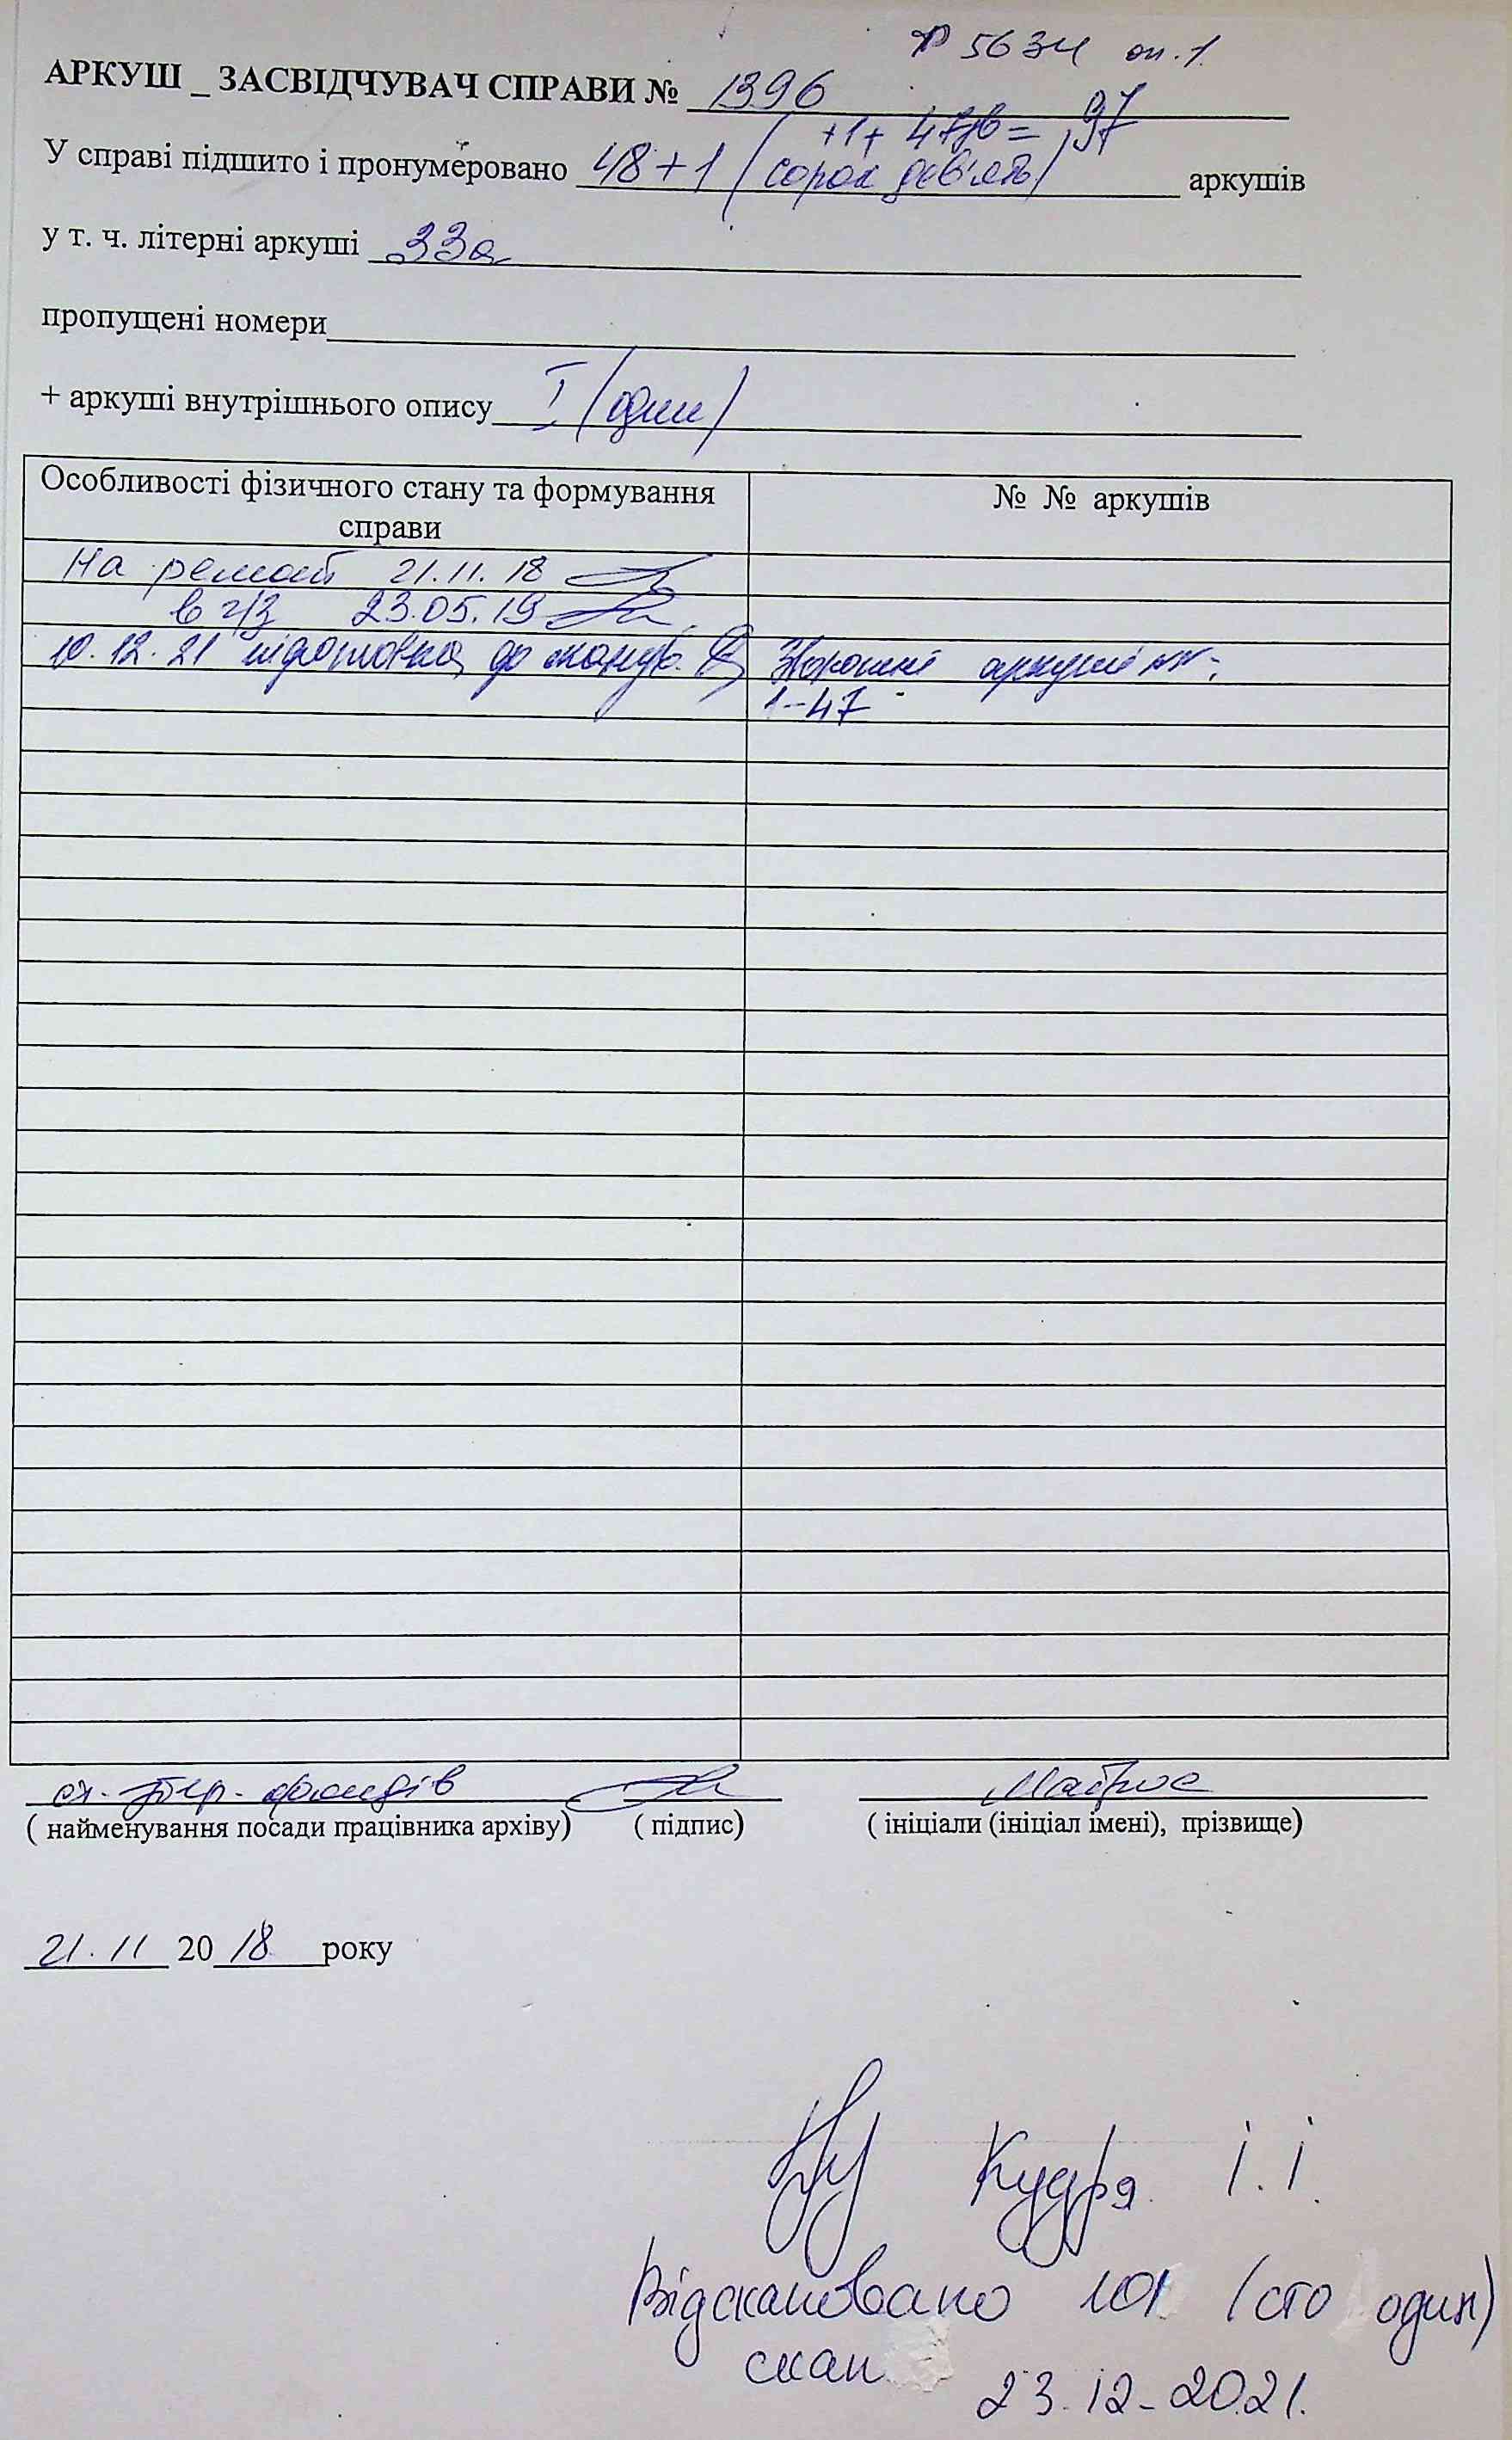 Р 5634 оп.1.
АРКУШ _ ЗАСВІДЧУВАЧ СПРАВИ № 1396
+1+ 47зв = 97
У справі підшито і пронумеровано 48+1 (сорок дев'ять) аркушів
у т. ч. літерні аркуші 33а
пропущені номери
+ аркуші внутрішнього опису I (один)
Особливості фізичного стану та формування справи
№ № аркушів
На ремонт 21.11.18
в 23.05.19
10.12.21 підготовка до сканув. Зворотні аркуші №№:
1-47
ст. фондів
( найменування посади працівника архіву) ( підпис) ( ініціали (ініціал імені), прізвище)
21.11 2018 року
Кудря І.І.
Відскановано 101 (сто один)
скан 23.12.2021.